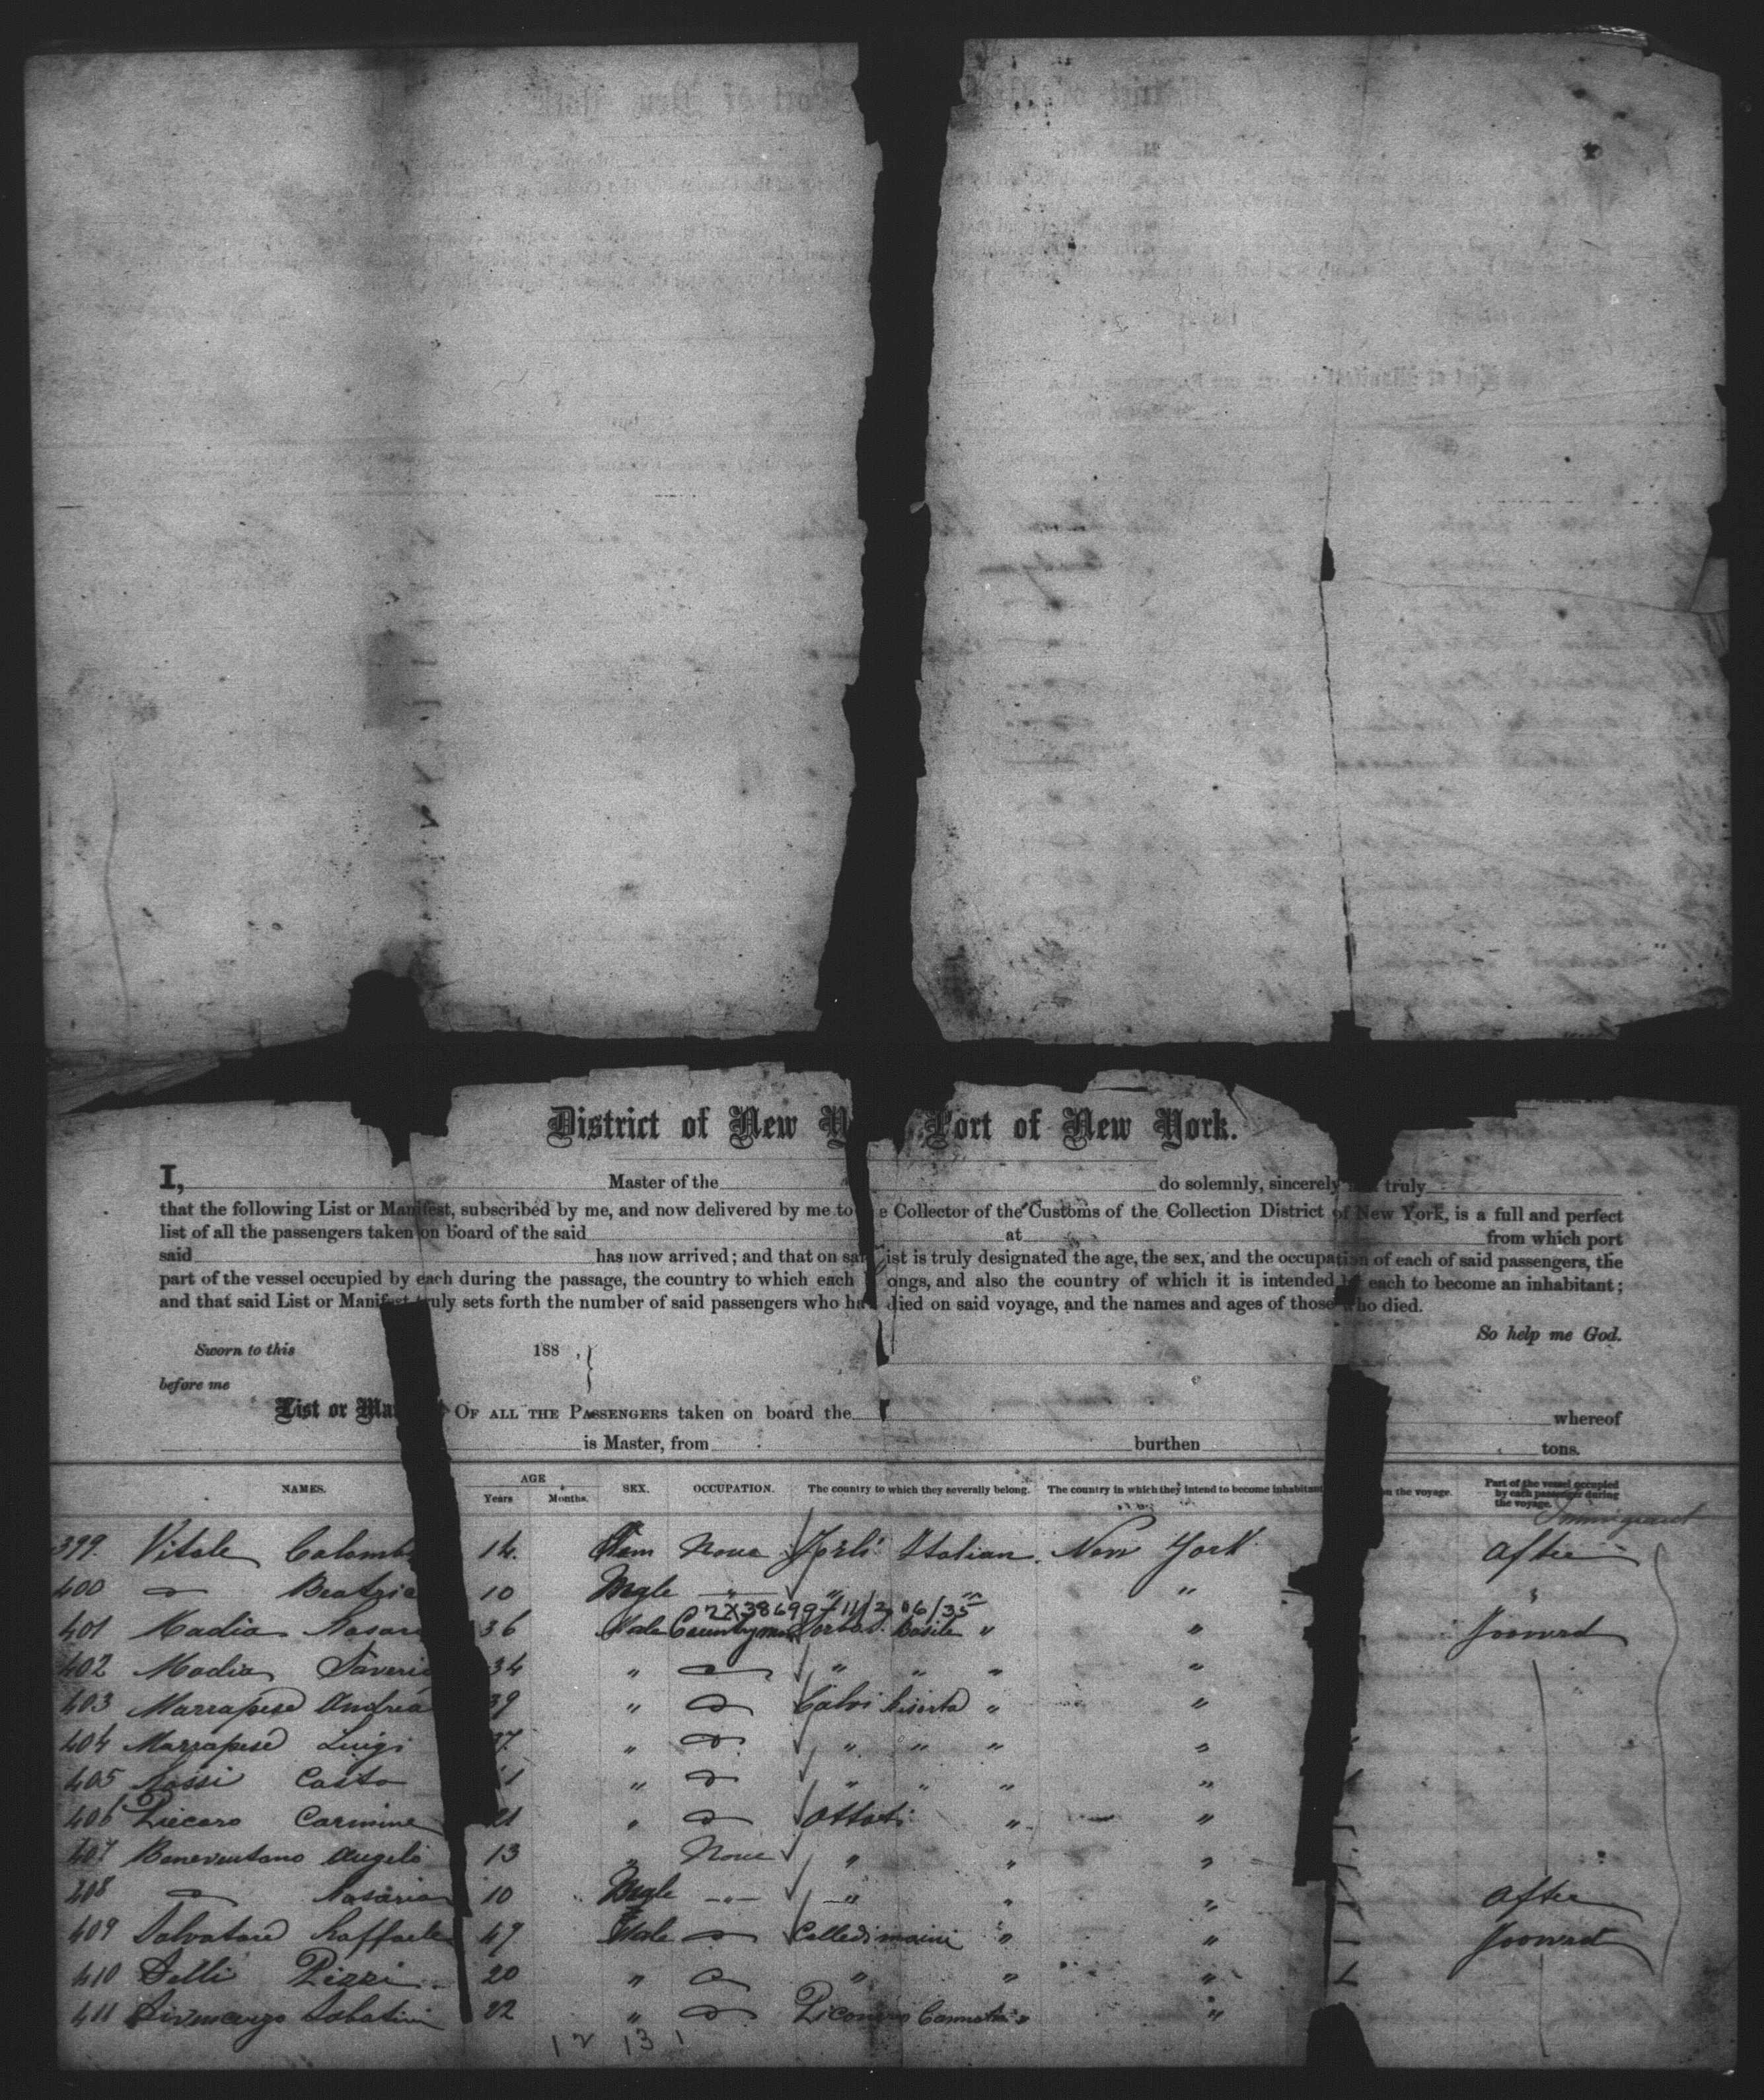 District of New Y Port of New York.
I, Master of the do solemnly, sincerely truly
that the following List or Manifest, subscribed by me, and now delivered by me to e Collector of the Customs of the Collection District of New York, is a full and perfect
list of all the passengers taken on board of the said at from which port
said has now arrived; and that on sai ist is truly designated the age, the sex, and the occupation of each of said passengers, the
part of the vessel occupied by each during the passage, the country to which each ongs, and also the country of which it is intended by each to become an inhabitant;
and that said List or Manifest truly sets forth the number of said passengers who ha died on said voyage, and the names and ages of those who died.
So help me God.
Sworn to this 188 ,
before me
List or Ma OF ALL THE PASSENGERS taken on board the whereof
is Master, from burthen tons.
NAMES. AGE Years Months. SEX. OCCUPATION. The country to which they severally belong. The country in which they intend to become inhabitant n the voyage. Part of the vessel occupied by each passenger during the voyage.
Immigrant
399. Vitale Colomb 14. Fem None Forli Italian. New York After
400 " Beatric 10 " " " "
2X38699 11/2 06/35
401 Madia Rosar 36 Male Countryman Basile " " Foorwd
402 Madia Saveri 34 " " " " " "
403 Marrapese Andrea 39 " " Calvi Risorta " "
404 Marrapese Luigi 7. " " " " " "
405 Rossi Casto 1 " " " " " "
406 Carmine 21 " " Ottati " "
407 Beneventano Angelo 13 " None " " "
408 " Rosaria 10 " " " " After
409 Salvatore Raffaele 47 Male " Colledimacine " " Foorwd
410 Delli Pizzi 20 " " " " "
411 Sabatin 22 " " " "
12 13 1